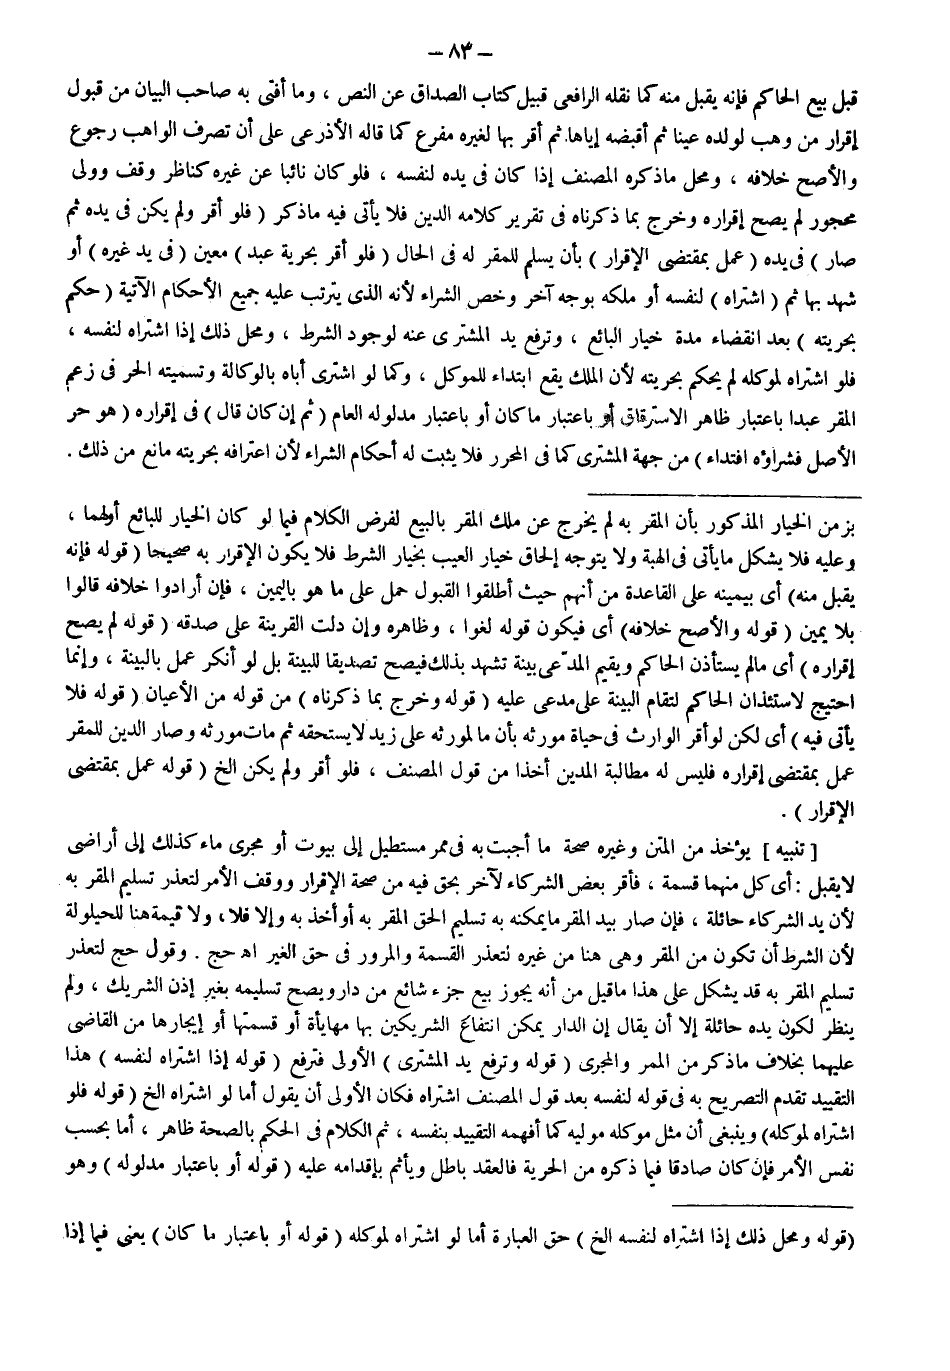 – ٨٣ –
قبل بيع الحاكم فإنه يقبل منه كما نقله الرافعى قبيل كتاب الصداق عن النص ، وما أفتى به صاحب البيان من قبول
إقرار من وهب لولده عينا ثم أقبضه إياها. ثم أقر بها لغيره مفرع كما قاله الأذرعى على أن تصرف الواهب رجوع
والأصح خلافه ، ومحل ماذكره المصنف إذا كان فى يده لنفسه ، فلو كان نائبا عن غيره كناظر وقف وولى
محجور لم يصح إقراره وخرج بما ذكرناه فى تقرير كلامه الدين فلا يأتى فيه ماذكر ( فلو أقر ولم يكن فى يده ثم
صار ) فى يده ( عمل بمقتضى الإقرار ) بأن يسلم للمقر له فى الحال ( فلو أقر بحرية عبد ) معين ( فى يد غيره ) أو
شهد بها ثم ( اشتراه ) لنفسه أو ملكه بوجه آخر وخص الشراء لأنه الذى يترتب عليه جميع الأحكام الآتية ( حكم
بحريته ) بعد انقضاء مدة خيار البائع ، وترفع يد المشترى عنه لوجود الشرط ، ومحل ذلك إذا اشتراه لنفسه ،
فلو اشتراه لموكله لم يحكم بحريته لأن الملك يقع ابتداء للموكل ، وكما لو اشترى أباه بالوكالة وتسميته الحر فى زعم
المقر عبدا باعتبار ظاهر الاسترقاق أو باعتبار ماكان أو باعتبار مدلوله العام ( ثم إن كان قال ) فى إقراره ( هو حر
الأصل فشراؤه افتداء ) من جهة المشترى كما فى المحرر فلا يثبت له أحكام الشراء لأن اعترافه بحريته مانع من ذلك .
بزمن الخيار المذكور بأن المقر به لم يخرج عن ملك المقر بالبيع لفرض الكلام فيما لو كان الخيار للبائع أولهما ،
وعليه فلا يشكل مايأتى فى الهبة ولا يتوجه إلحاق خيار العيب بخيار الشرط فلا يكون الإقرار به صحيحا ( قوله فإنه
يقبل منه) أى بيمينه على القاعدة من أنهم حيث أطلقوا القبول حمل على ما هو باليمين ، فإن أرادوا خلافه قالوا
بلا يمين ( قوله والأصح خلافه) أى فيكون قوله لغوا ، وظاهره وإن دلت القرينة على صدقه ( قوله لم يصح
إقراره ) أى مالم يستأذن الحاكم ويقيم المدّعى بينة تشهد بذلك فيصح تصديقا للبينة بل لو أنكر عمل بالبينة ، وإنما
احتيج لاستئذان الحاكم لتقام البينة على مدعى عليه ( قوله وخرج بما ذكرناه ) من قوله من الأعيان ( قوله فلا
يأتى فيه ) أى لكن لو أقر الوارث فى حياة مورثه بأن ما لمورثه على زيد لايستحقه ثم مات مورثه وصار الدين للمقر
عمل بمقتضى إقراره فليس له مطالبة المدين أخذا من قول المصنف ، فلو أقر ولم يكن الخ ( قوله عمل بمقتضى
الإقرار ) .
[ تنبيه ] يؤخذ من المتن وغيره صحة ما أجبت به فى ممر مستطيل إلى بيوت أو مجرى ماء كذلك إلى أراضى
لايقبل : أى كل منهما قسمة ، فأقر بعض الشركاء لآخر بحق فيه من صحة الإقرار ووقف الأمر لتعذر تسليم المقر به
لأن يد الشركاء حائلة ، فإن صار بيد المقر مايمكنه به تسليم الحق المقر به أو أخذ به وإلا فلا، ولا قيمة هنا للحيلولة
لأن الشرط أن تكون من المقر وهى هنا من غيره لتعذر القسمة والمرور فى حق الغير اه حج . وقول حج لتعذر
تسليم المقر به قد يشكل على هذا ماقيل من أنه يجوز بيع جزء شائع من دار ويصح تسليمه بغير إذن الشريك ، ولم
ينظر لكون يده حائلة إلا أن يقال إن الدار يمكن انتفاع الشريكين بها مهايأة أو قسمتها أو إيجارها من القاضى
عليهما بخلاف ماذكر من الممر والمجرى ( قوله وترفع يد المشترى ) الأولى فترفع ( قوله إذا اشتراه لنفسه ) هذا
التقييد تقدم التصريح به فى قوله لنفسه بعد قول المصنف اشتراه فكان الأولى أن يقول أما لو اشتراه الخ ( قوله فلو
اشتراه لموكله) وينبغى أن مثل موكله موليه كما أفهمه التقييد بنفسه ، ثم الكلام فى الحكم بالصحة ظاهر ، أما بحسب
نفس الأمر فإن كان صادقا فيما ذكره من الحرية فالعقد باطل ويأثم بإقدامه عليه ( قوله أو باعتبار مدلوله ) وهو
(قوله ومحل ذلك إذا اشتراه لنفسه الخ ) حق العبارة أما لو اشتراه لموكله ( قوله أو باعتبار ما كان ) يعنى فيما إذا